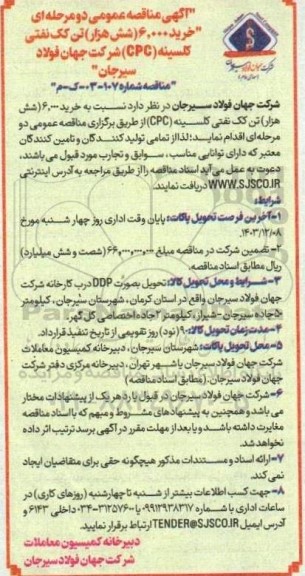 "آگهی مناقصه عمومی دو مرحله ای
"خرید ۶,۰۰۰ (شش هزار) تن کک نفتی
کلسینه (CPC) شرکت جهان فولاد
سیرجان"
"مناقصه شماره ۱۰۷-۰۳-ک-م"
شرکت جهان فولاد سیرجان
شرکت جهان فولاد سیرجان در نظر دارد نسبت به خرید ۶,۰۰۰ (شش
هزار) تن کک نفتی کلسینه (CPC) از طریق برگزاری مناقصه عمومی دو
مرحله ای اقدام نماید؛ لذا از تمامی تولید کنندگان و تامین کنندگان
معتبر که دارای توانایی مناسب، سوابق و تجارب مورد قبول می باشند،
دعوت به عمل می آید اسناد مناقصه را از طریق مراجعه به آدرس اینترنتی
WWW.SJSCO.IR دریافت نمایند.
شرایط:
۱-آخرین فرصت تحویل پاکات: پایان وقت اداری روز چهار شنبه مورخ
۱۴۰۳/۱۲/۰۸.
۲- تضمین شرکت در مناقصه مبلغ ۶۶,۰۰۰,۰۰۰,۰۰۰ (شصت و شش میلیارد)
ریال مطابق اسناد مناقصه.
۳- شرایط و محل تحویل کالا: تحویل بصورت DDP درب کارخانه شرکت
جهان فولاد سیرجان واقع در استان کرمان، شهرستان سیرجان، کیلومتر
۵۰ جاده سیرجان -شیراز، کیلومتر ۲ جاده اختصاصی گل گهر.
۴- مدت زمان تحویل کالا: ۹۰ (نود) روز تقویمی از تاریخ تنفیذ قرارداد.
۵- محل تحویل پاکات: شهرستان سیرجان، دبیرخانه کمیسیون معاملات
شرکت جهان فولاد سیرجان یا شهر تهران، دبیرخانه مرکزی دفتر شرکت
جهان فولاد سیرجان. (مطابق اسناد مناقصه)
۶- شرکت جهان فولاد سیرجان در قبول یا رد هر یک از پیشنهادات مختار
می باشد و همچنین به پیشنهادهای مشروط و مبهم که با اسناد مناقصه
مغایرت داشته باشد و یا بعد از مهلت مقرر در آگهی برسد ترتیب اثر داده
نخواهد شد.
۷- ارائه اسناد و مستندات مذکور هیچگونه حقی برای متقاضیان ایجاد
نمی کند.
۸- جهت کسب اطلاعات بیشتر از شنبه تا چهارشنبه (روزهای کاری) در
ساعات اداری با شماره ۰۹۹۱۲۹۳۸۳۱۷ یا ۰۳۴-۳۱۲۵۷۶۰ داخلی ۶۱۴۳ و
آدرس ایمیل TENDER@SJSCO.IR ارتباط برقرار نمایید.
دبیرخانه کمیسیون معاملات
شرکت جهان فولاد سیرجان